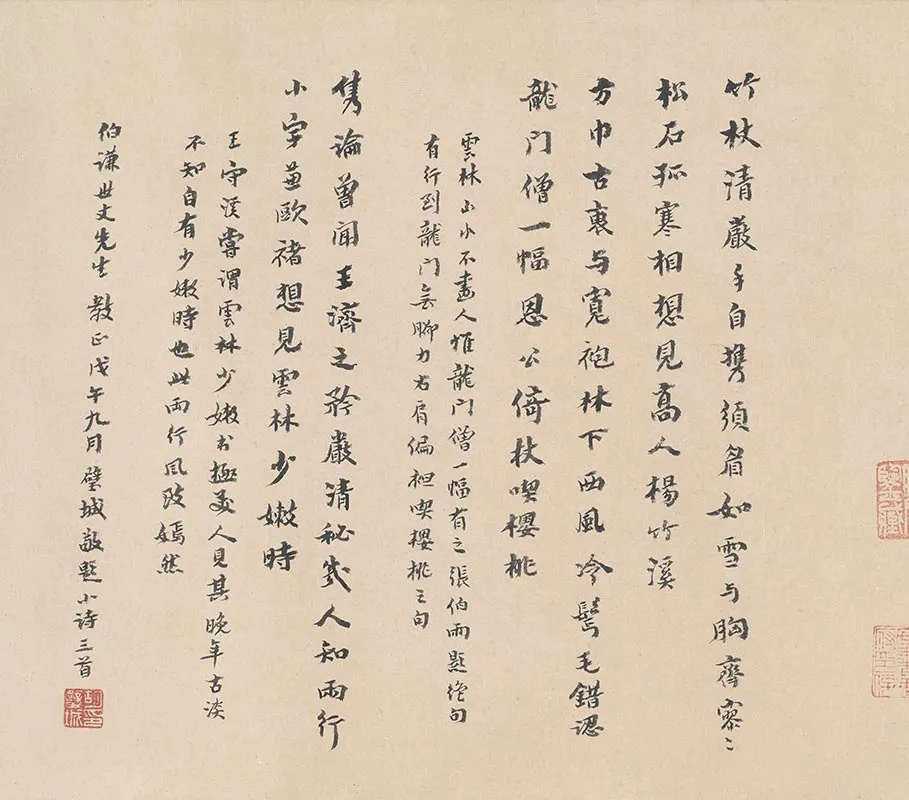 竹杖清嚴手自攜須眉如雪与胸齊寥〻
松石孤寒相想見高人楊竹溪
方巾古裹与寬袍林下西風冷鬢毛錯認
龍门僧一幅恩公倚杖喫櫻桃
雲林山水不畫人惟龍门僧一幅有之張伯雨題絕句
有行到龍门無脚力右肩偏袒喫櫻桃之句
雋論曾聞王濟之矜嚴清秘幾人知兩行
小字兼歐禇想見雲林少嫩時
王守溪嘗謂雲林少嫩書極美人見其晚年古淡
不知自有少嫩時也此兩行風致嫣然
伯谦世丈先生 教正戊午九月璧城敬題小诗三首